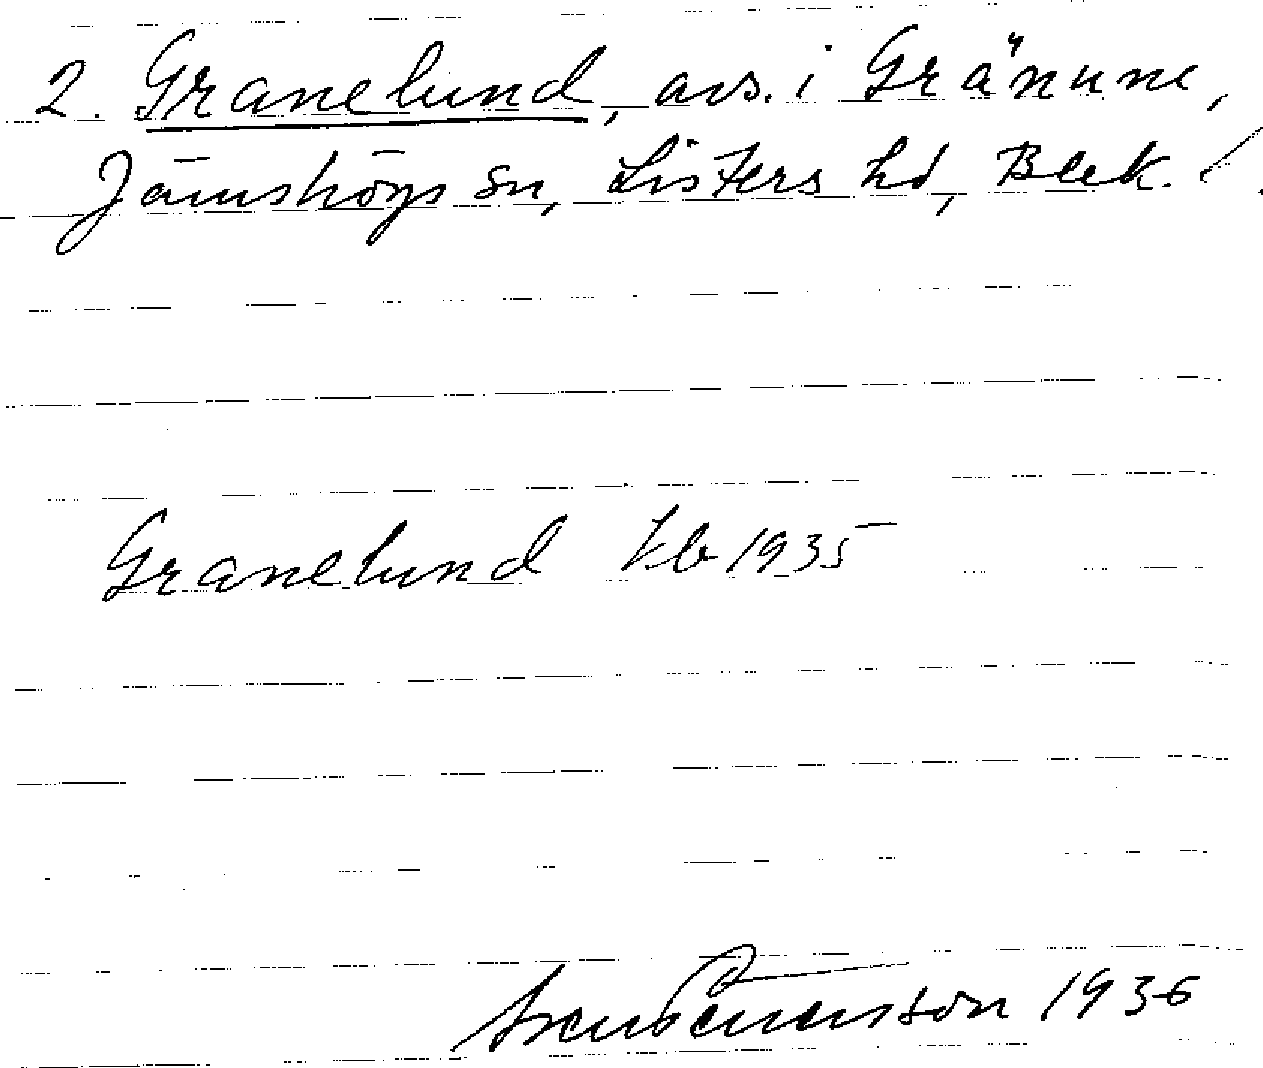 2. Granelund, avs. i Grännne,
Jämshögs sn, Listers hd, Blek.
Granelund Jb 1935
Sven Benson 1936